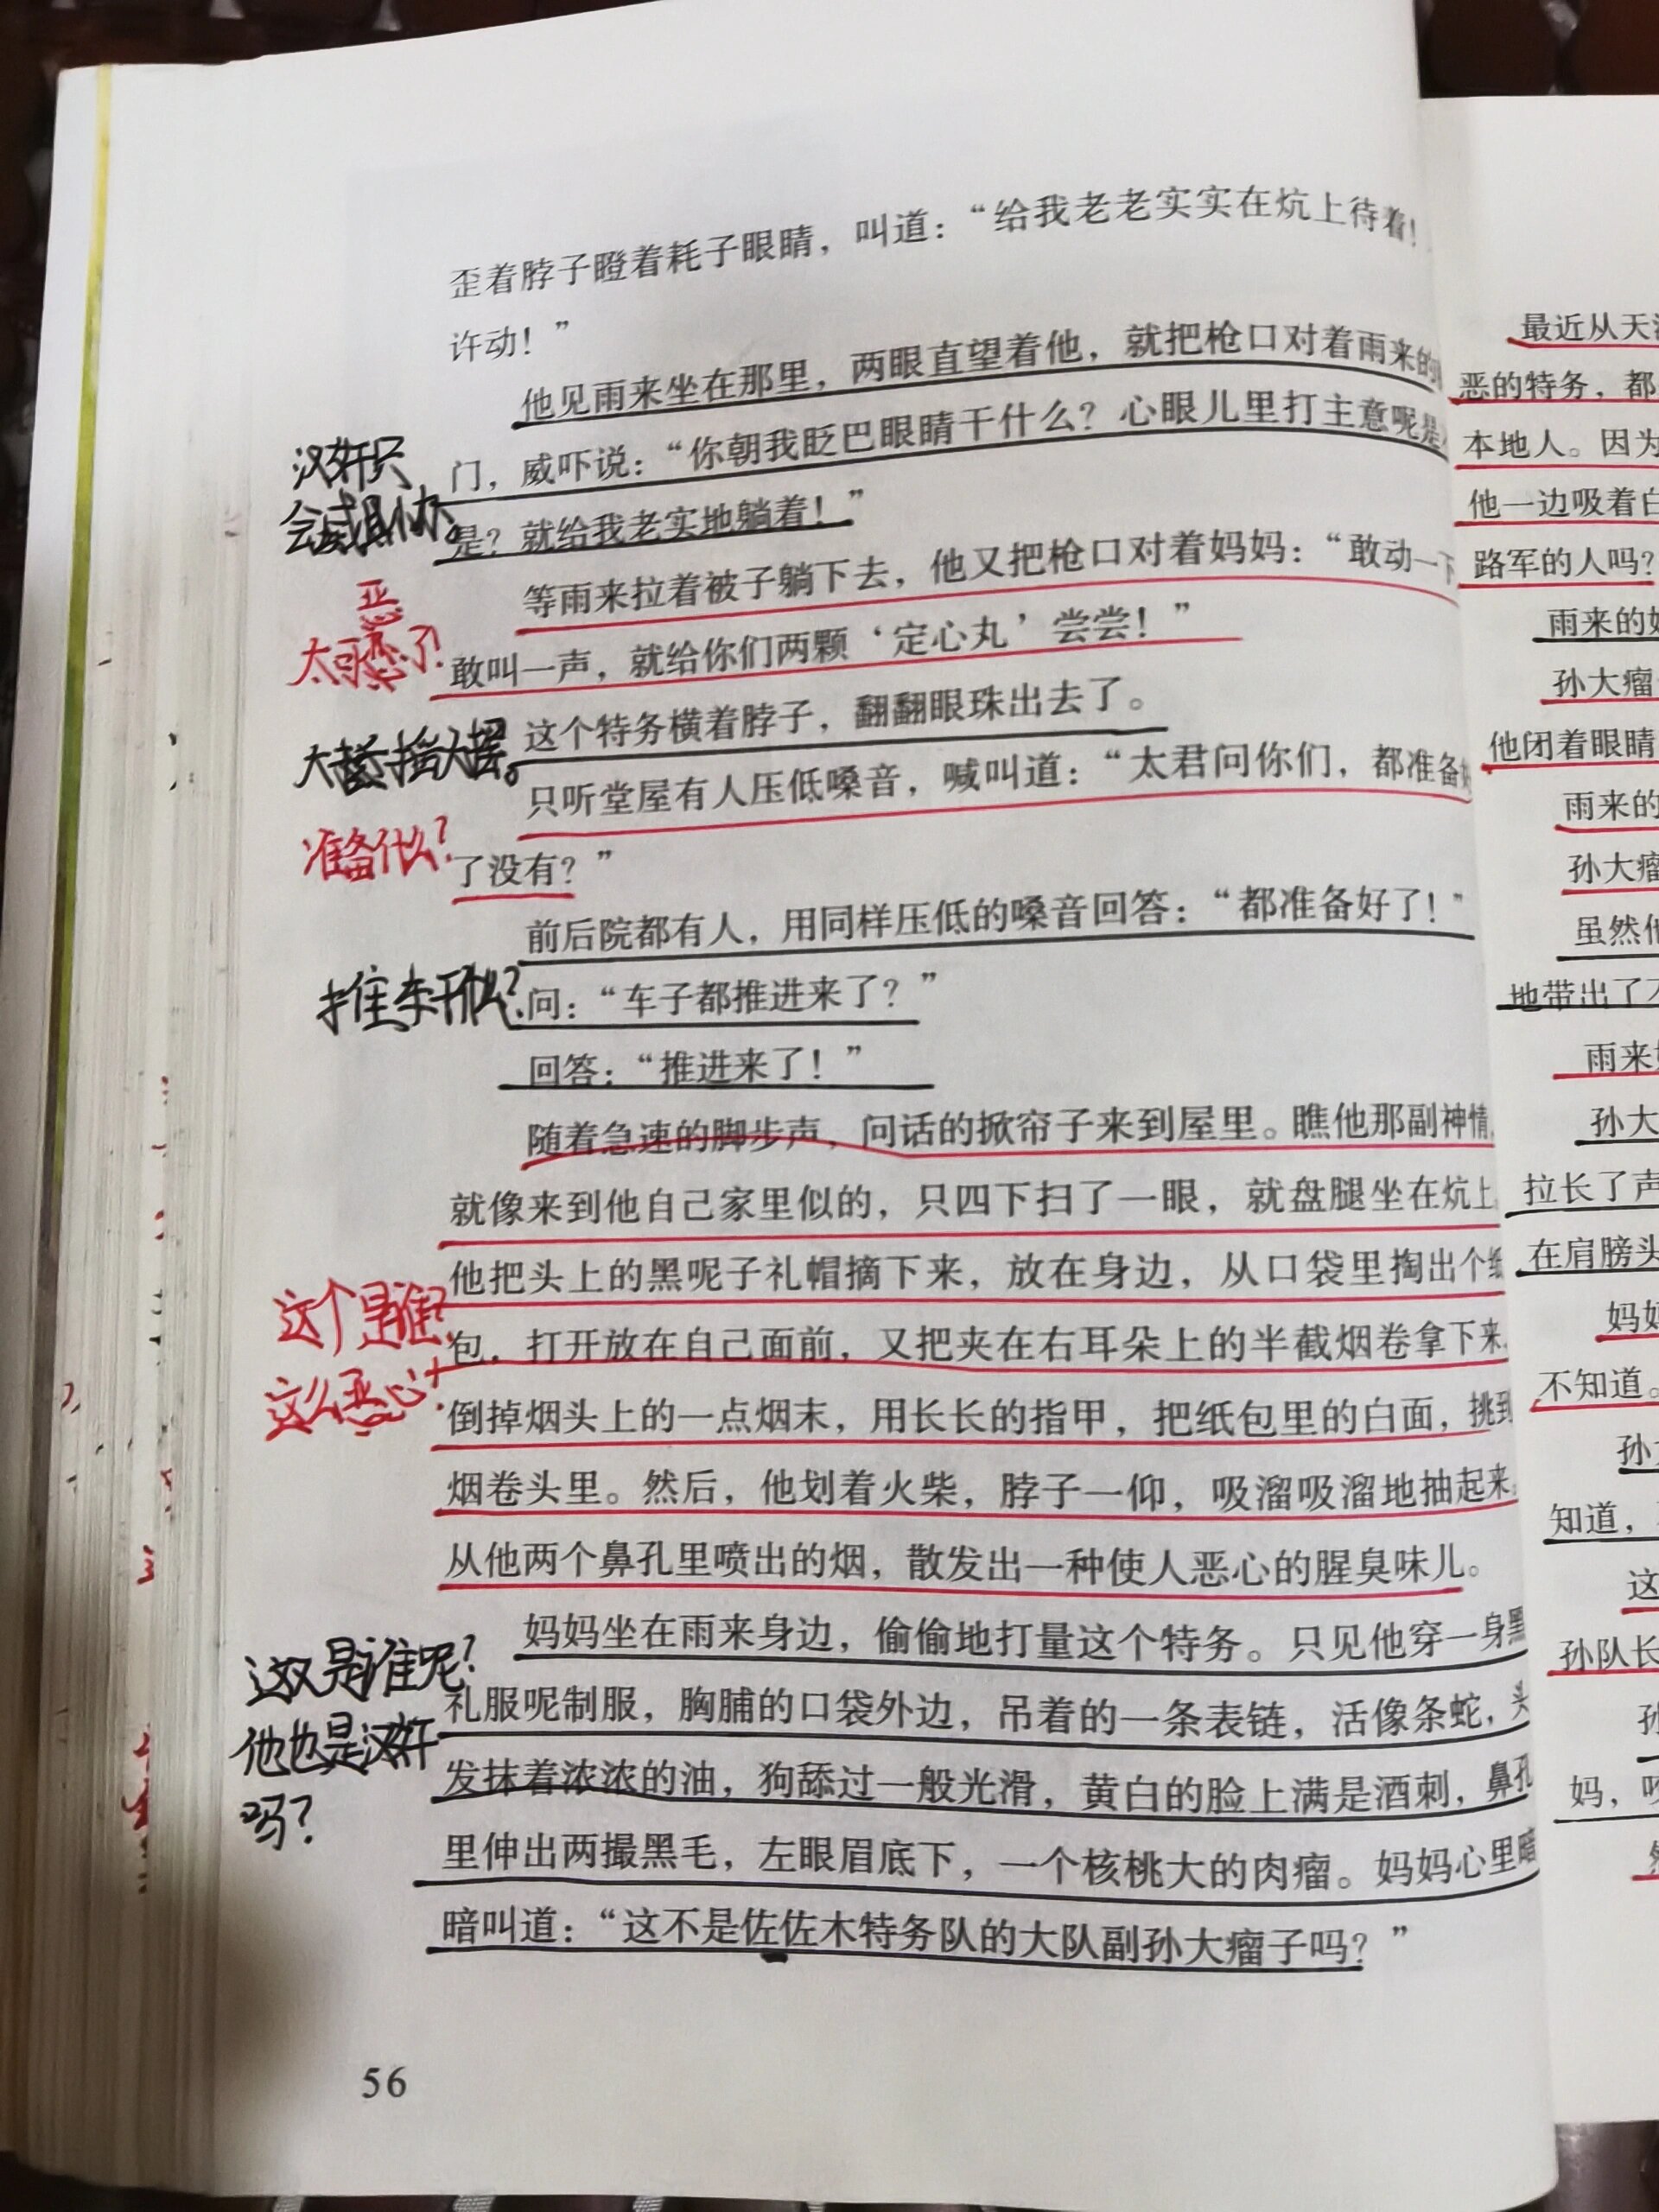 歪着脖子瞪着耗子眼睛，叫道：“给我老老实实在炕上待着！
许动！”
他见雨来坐在那里，两眼直望着他，就把枪口对着雨来的
门，威吓说：“你朝我眨巴眼睛干什么？心眼儿里打主意呢是
是？就给我老实地躺着！”
等雨来拉着被子躺下去，他又把枪口对着妈妈：“敢动一下
敢叫一声，就给你们两颗‘定心丸’尝尝！”
这个特务横着脖子，翻翻眼珠出去了。
只听堂屋有人压低嗓音，喊叫道：“太君问你们，都准备好
了没有？”
前后院都有人，用同样压低的嗓音回答：“都准备好了！”
问：“车子都推进来了？”
回答：“推进来了！”
随着急速的脚步声，问话的掀帘子来到屋里。瞧他那副神情，
就像来到他自己家里似的，只四下扫了一眼，就盘腿坐在炕上。
他把头上的黑呢子礼帽摘下来，放在身边，从口袋里掏出个纸
包，打开放在自己面前，又把夹在右耳朵上的半截烟卷拿下来，
倒掉烟头上的一点烟末，用长长的指甲，把纸包里的白面，挑到
烟卷头里。然后，他划着火柴，脖子一仰，吸溜吸溜地抽起来。
从他两个鼻孔里喷出的烟，散发出一种使人恶心的腥臭味儿。
妈妈坐在雨来身边，偷偷地打量这个特务。只见他穿一身黑
礼服呢制服，胸脯的口袋外边，吊着的一条表链，活像条蛇，头
发抹着浓浓的油，狗舔过一般光滑，黄白的脸上满是酒刺，鼻孔
里伸出两撮黑毛，左眼眉底下，一个核桃大的肉瘤。妈妈心里暗
暗叫道：“这不是佐佐木特务队的大队副孙大瘤子吗？”
56
汉奸只
会威
恶
太可恶了！
大摇大摆。
准备什么？
推车干什么？
这个是谁？
这么恶心！
这又是谁呢？
他也是汉奸
吗？
最近从天
恶的特务，都
本地人。因为
他一边吸着白
路军的人吗？
雨来的妈
孙大瘤
他闭着眼睛
雨来的
孙大瘤
虽然他
地带出了不
雨来妈
孙大
拉长了声
在肩膀头
妈妈
不知道。
孙
知道，
这
孙队长
孙
妈，